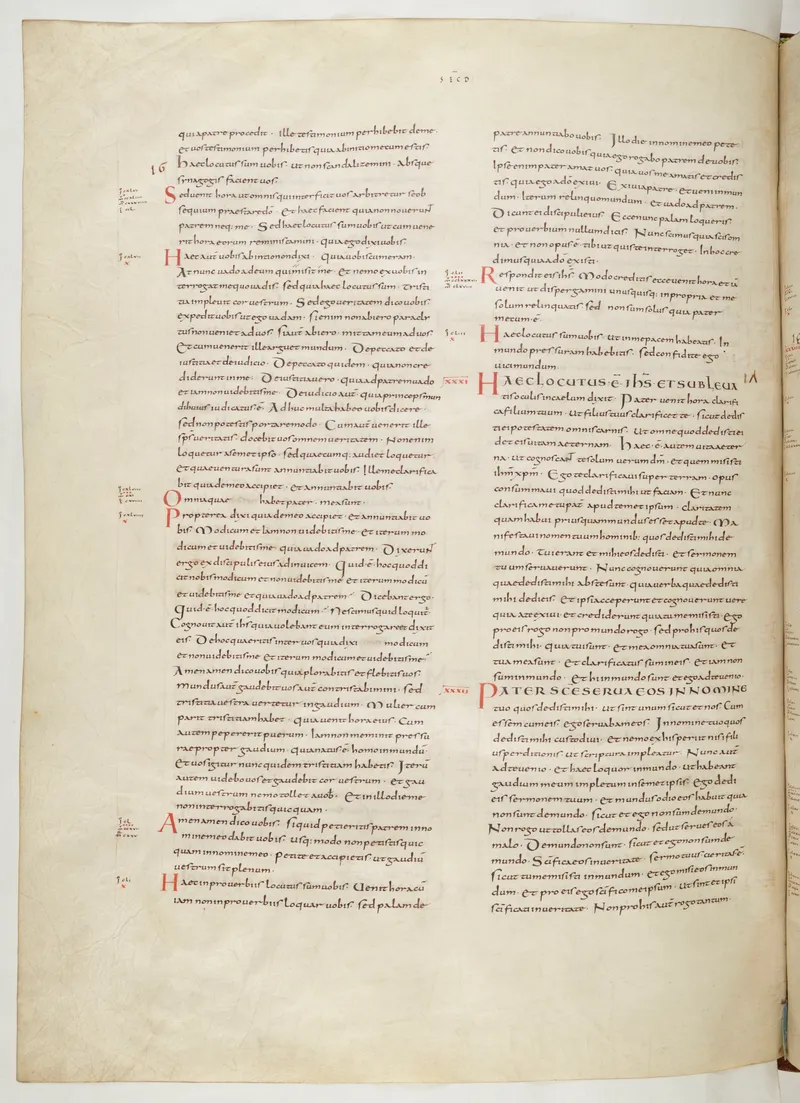 SCD
quia patre procedit · ille testimonium perhibebit deme ·
et uos testimonium perhibetis quia abinitio mecum estis ·
16
haec locutus sum uobis · ut non scandalizemini · Absque
synagogis facient uos ·
Sed uenit hora ut omnis qui interficit uos arbitretur se ob
sequium praestare dō · Et haec facient quia non nouerunt
patrem neq; me · Sed haec locutus sum uobis ut cum uene
rit hora eorum reminiscamini · quia ego dixi uobis ·
Haec aut uobis abinitio non dixi · quia uobiscum eram ·
At nunc uado adeum qui misit me · Et nemo ex uobis in
terrogat me quo uadis · sed quia haec locutus sum · tristi
tia impleuit cor uestrum · Sed ego ueritatem dico uobis ·
expedit uobis ut ego uadam · si enim non abiero paracly
tus non ueniet ad uos · si aut abiero · mittam eum ad uos ·
Et cum uenerit ille arguet mundum · De peccato et de
iustitia et de iudicio · De peccato quidem · quia non cre
diderunt in me · De iustitia uero · quia ad patrem uado
et iam non uidebitis me · De iudicio aut · quia princeps mun
di huius iudicatus ē · Adhuc multa habeo uobis dicere ·
sed non potestis portare modo · Cum aut uenerit ille
sps ueritatis · docebit uos omnem ueritatem · Non enim
loquetur a semetipso · sed quaecumq; audiet loquetur
et quae uentura sunt annuntiabit uobis · Ille me clarifica
bit quia de meo accipiet · et annuntiabit uobis ·
Omnia quae habet pater · mea sunt ·
Propterea dixi quia de meo accipiet · et annuntiabit uo
bis · Modicum et iam non uidebitis me · et iterum mo
dicum et uidebitis me · quia uado ad patrem · Dixerunt
ergo ex discipulis eius ad inuicem · Quid ē hoc quod di
cit nobis modicum et non uidebitis me · et iterum modicū
et uidebitis me et quia uado ad patrem · Dicebant ergo ·
Quid ē hoc quod dicit modicum · Nescimus quid loquit ·
Cognouit aut ihs quia uolebant eum interrogare et dixit
eis · De hoc quaeritis inter uos quia dixi modicum
et non uidebitis me · Et iterum modicum et uidebitis me ·
Amen amen dico uobis · quia plorabitis et flebitis uos ·
mundus aut gaudebit uos aut contristabimini · sed
tristitia uestra uertetur in gaudium · Mulier cum
parit tristitiam habet · quia uenit hora eius · Cum
autem pepererit puerum · Iam non meminit pressu
rae propter gaudium · quia natus ē homo in mundū ·
Et uos igitur nunc quidem tristitiam habetis · Iterū
autem uidebo uos et gaudebit cor uestrum · Et gau
dium uestrum nemo tollet a uob · Et in illo die me
non interrogabitis quicquam ·
Amen amen dico uobis · si quid petieritis patrem in no
mine meo dabit uobis · usq; modo non petistis quic
quam in nomine meo · petite et accipietis ut gaudiū
uestrum sit plenum ·
Haec in prouerbiis locutus sum uobis · Uenit hora cū
iam non in prouerbiis loquar uobis · sed palam de
patre annuntiabo uobis · Illo die in nomine meo pete
tis · et non dico uobis quia ego rogabo patrem de uobis ·
Ipse enim pater amat uos quia uos me amatis et credis
tis quia ego a do exiui · Exiui a patre · et ueni in mun
dum · Iterum relinquo mundum · et uado ad patrem ·
Dicunt ei discipuli eius · Ecce nunc palam loqueris
et prouerbium nullum dicis · Nunc scimus quia scis om
nia · et non opus ē tibi ut quis te interroget · In hoc cre
dimus quia a do existi ·
Respondit eis ihs · Modo creditis ecce uenit hora et iā
uenit ut dispergamini unusquisq; in propria et me
solum relinquatis · sed non sum solus quia pater
mecum ē ·
Haec locutus sum uobis · ut in me pacem habeatis · In
mundo pressuram habebitis · sed confidite ego
uici mundum ·
XXXI
HAEC LOCUTUS · Ē · IHS · ET SUBLEUA
tis oculis in caelum dixit · Pater uenit hora clarifi
ca filium tuum · ut filius tuus clarificet te · sicut dedis
ti ei potestatem omnis carnis · Ut omne quod dedisti ei
det eis uitam aeternam · Haec · ē · autem uita aeter
na · ut cognoscant te solum uerum dm · et quem misisti
ihm xpm · Ego te clarificaui super terram · opus
consummaui quod dedisti mihi ut faciam · Et nunc
clarifica me tu pat apud temetipsum · claritatem
quam habui priusquam mundus esset apud te · Ma
nifestaui nomen tuum hominib; quos dedisti mihi de
mundo · Tui erant et mihi eos dedisti · et sermonem
tuum seruauerunt · Nunc cognouerunt quia omnia
quae dedisti mihi abs te sunt · quia uerba quae dedisti
mihi dedi eis · Et ipsi acceperunt et cognouerunt uere
quia a te exiui · et crediderunt quia tu me misisti · ego
pro eis rogo non pro mundo rogo · sed pro his quos de
disti mihi · quia tui sunt · Et mea omnia tua sunt · Et
tua mea sunt · Et clarificatus sum in eis · Et iam non
sum in mundo · Et hi in mundo sunt · et ego ad te uenio ·
XXXII
PATER SCE SERUA EOS IN NOMINE
tuo quos dedisti mihi · ut sint unum sicut et nos · Cum
essem cum eis · ego seruabam eos · In nomine tuo quos
dedisti mihi custodiui · Et nemo ex his periuit nisi fili
us perditionis · ut scriptura impleatur · Nunc aut
ad te uenio · et haec loquor in mundo · ut habeant
gaudium meum impletum in semetipsis · ego dedi
eis sermonem tuum · et mundus odio eos habuit quia
non sunt de mundo · sicut et ego non sum de mundo ·
Non rogo ut tollas eos de mundo · sed ut serues eos a
malo · De mundo non sunt · sicut et ego non sum de
mundo · Scifica eos in ueritate · sermo tuus ueritas ē ·
sicut tu me misisti in mundum · et ego misi eos in mun
dum · Et pro eis ego scifico meipsum · ut sint et ipsi
scificati in ueritate · Non pro his aut rogo tantum ·